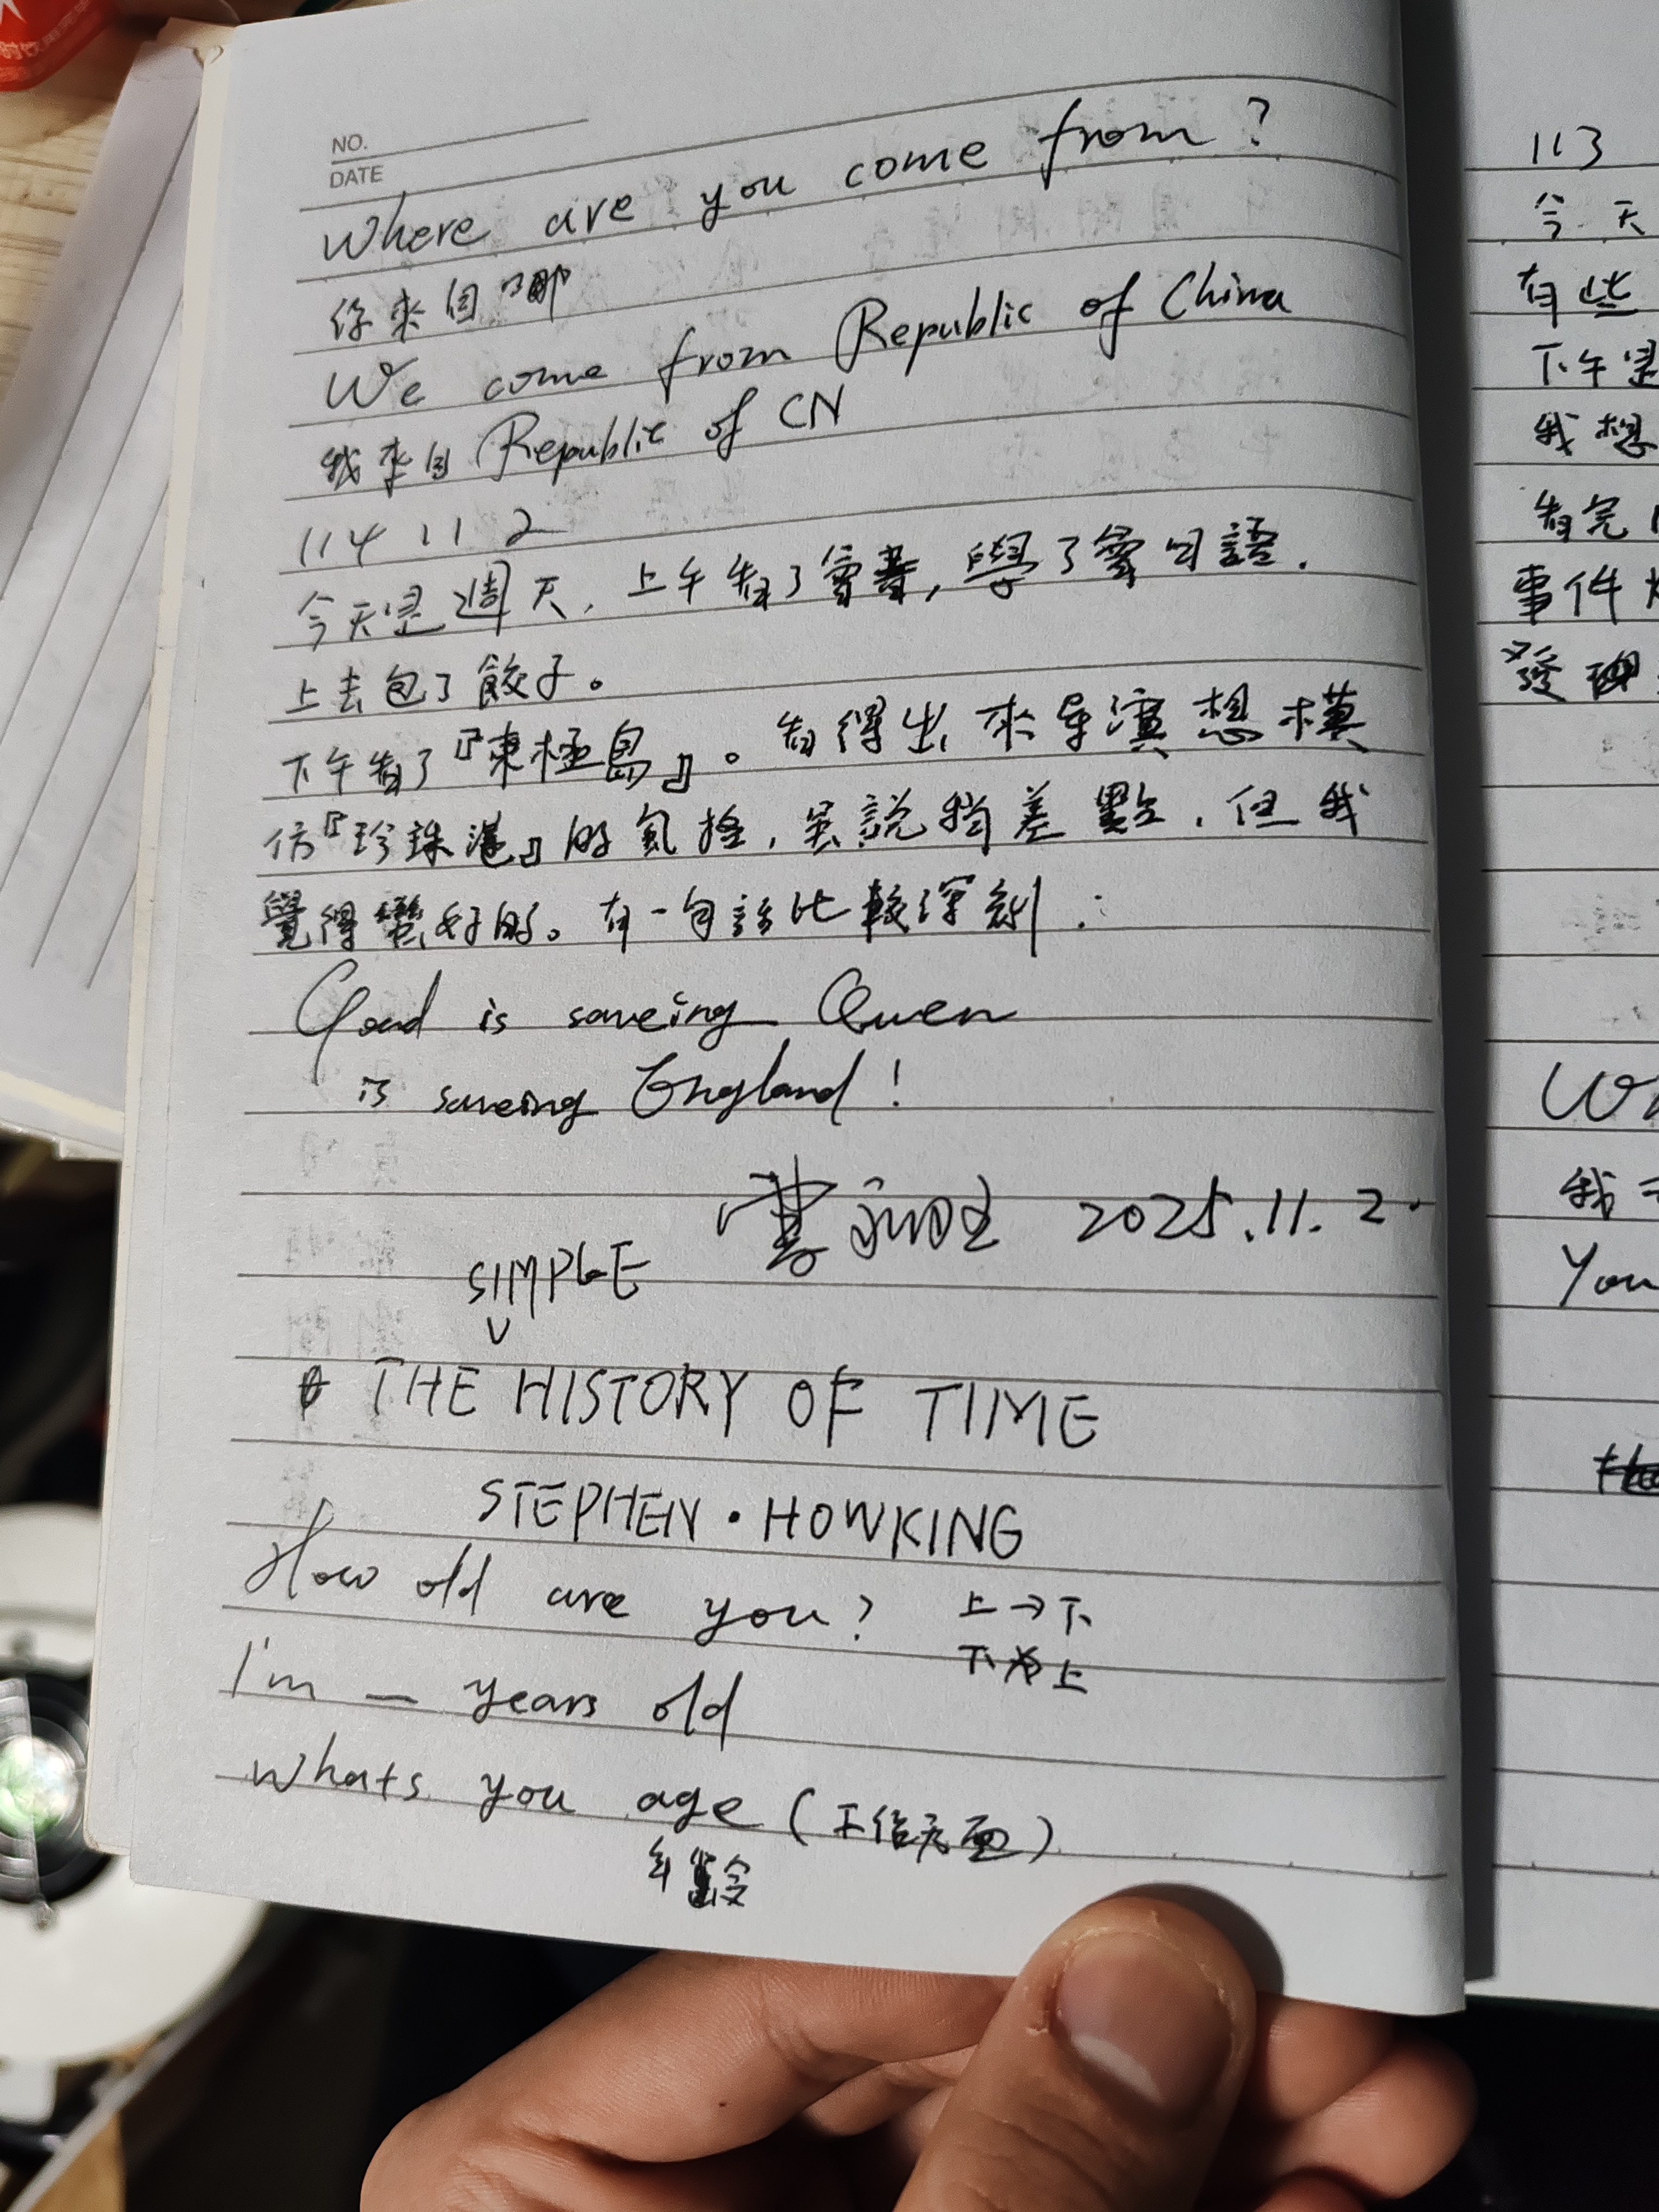 NO.
DATE
Where are you come from?
你來自哪
We come from Republic of China
我來自 Republic of CN
114 11 2
今天是週天，上午看了會書，學了會日語.
上去包了餃子。
下午看了『東極島』。看得出來导演想模
仿『珍珠港』的氣 說稍差點，但我
覺得蠻好的。有一句話比較深刻：
Goad is saveing Queen
is saveing England!
2025.11.2.
SIMPLE
THE HISTORY OF TIME
STEPHEN·HOWKING
How old are you? 上→下
下 上
I'm — years old
Whats you age (工作 面)
年齡
113
今天
有些
下午是
我想
看完
事件
發現
我
You